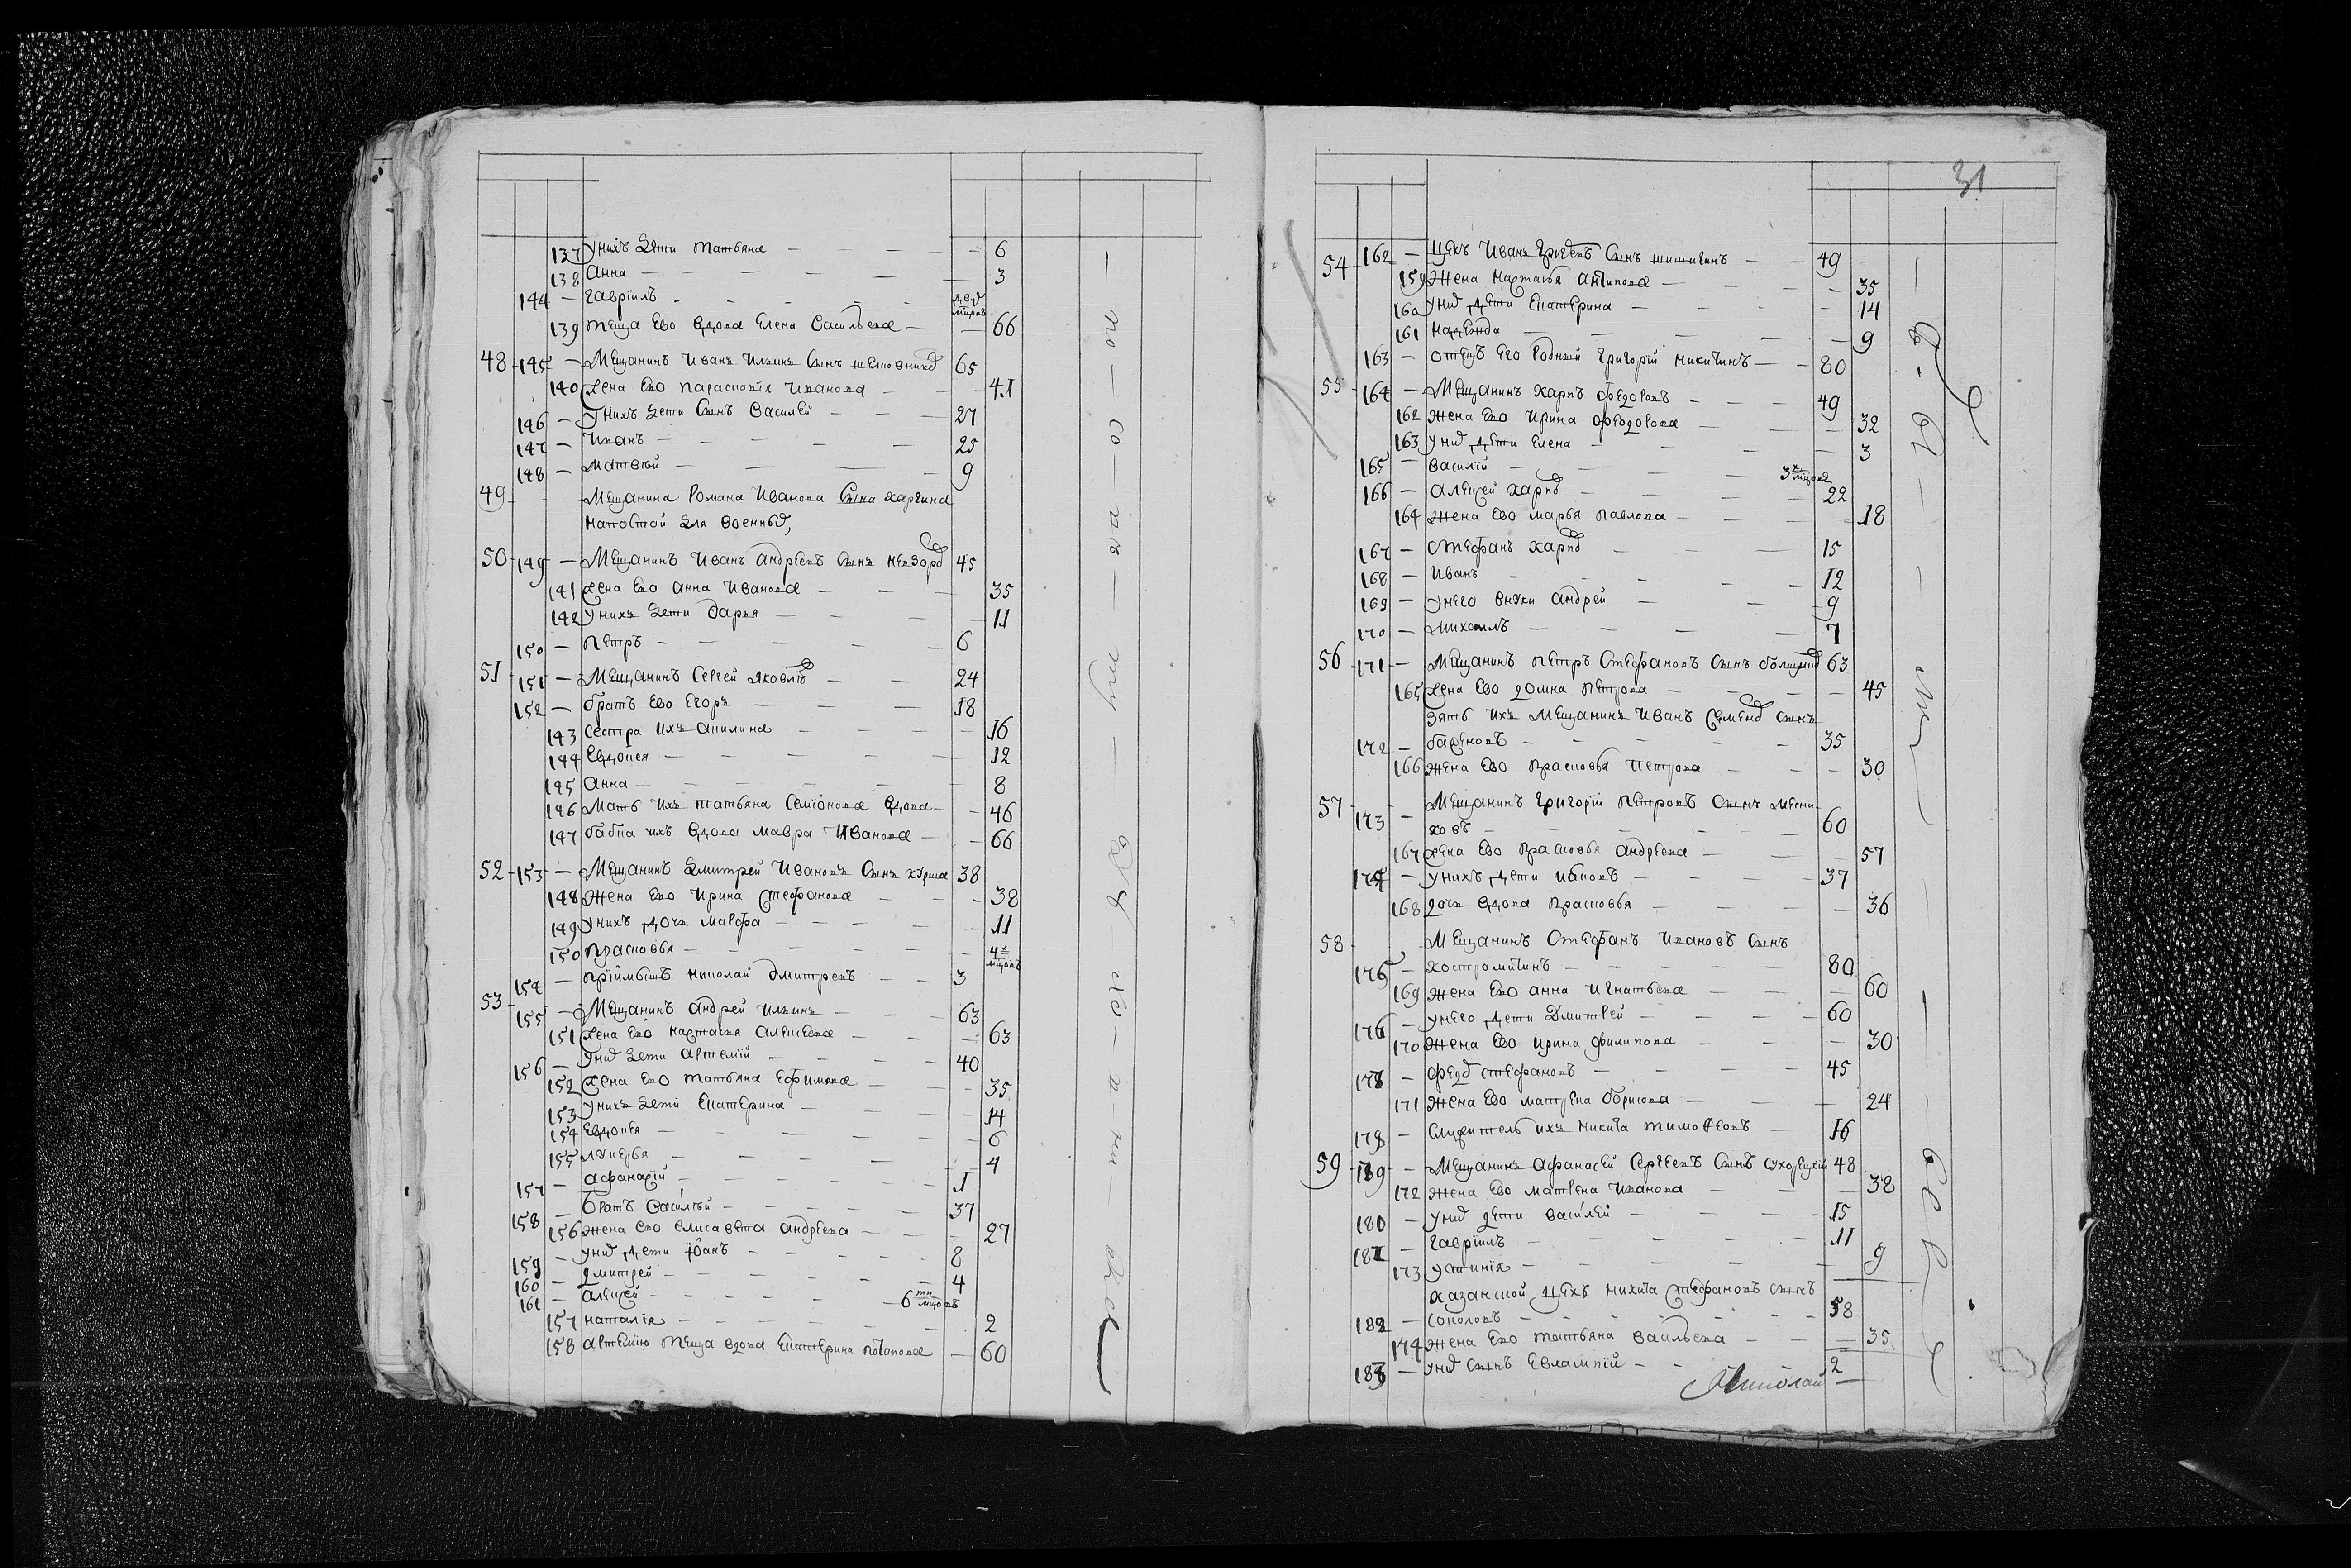 137 У нихъ дѣти Татьяна — — — — 6
138 Анна — — — — 3
144 — Гавріилъ — — — —
139 Теща Ево вдова Елена Васильева — — 66
48 145 — Мещанинъ Иванъ Ильинъ Сынъ 65
140 жена Ево Парасковія Иванова — — 41
146 — У нихъ дети Сынъ Василей — — — 27
147 — Иванъ — — — — 25
148 — Матвѣй — — — 9
49 Мещанина Романа Иванова Сына Харчина
на постой для военныхъ
50 149 — Мещанинъ Иванъ Андреевъ Сынъ 45
141 жена Ево Анна Иванова — — — 35
142 У нихъ дети Дарья — — — — 11
150 — Петръ — — — — 6
51 151 — Мещанинъ Сергей Яковлевъ — — 24
152 — братъ Ево Егоръ — — — 18
143 Сестра Ихъ Акилина — — — — 16
144 Евдокея — — — — 12
145 Анна — — — — 8
146 Мать Ихъ Татьяна Семіонова вдова — — 46
147 бабка ихъ вдова Мавра Иванова — — 66
52 153 — Мещанинъ Дмитрей Ивановъ Сынъ 38
148 Жена Ево Ирина Стефанова — — — 38
149 У нихъ дочь Марфа — — — — 11
150 Прасковья — — — — 4х мцовъ
154 — Пріймышъ Николай Дмитревъ — — 3
53 155 — Мещанинъ Андрей Ильинъ — — — 63
151 жена Ево Настасья Алексеева — — — 63
156 — У нихъ дети Артемій — — — 40
152 жена Ево Татьяна Ефимова — — — 35
153 У нихъ дети Екатерина — — — 14
154 Евдокея — — — — 6
155 Лукерья — — — — 4
157 — Афанасій — — — — 1
158 — Братъ Василій — — — — 37
156 Жена Ево Елисавета Андреева — — 27
159 — У нихъ дети Іванъ — — — — 8
160 — Дмитрей — — — — 4
161 — Алексей — — — — 6ти мцовъ
157 Наталія — — — — 2
158 Артемію теща вдова Екатерина Потапова — 60
31
54 162 — Цехъ Иванъ Григоревъ Сынъ Шишигинъ — — 49
159 Жена Настасья Антипова — — — 35
160 У нихъ дети Екатерина — — — 14
161 Надежда — — — 9
163 — Отецъ Его родный Григорій Никитинъ — — 80
55 164 — Мещанинъ Карпъ Федоровъ — — — 49
162 Жена Ево Ирина Феодорова — — — 32
163 У нихъ дети Елена — — — 3
165 — Василій — — — 3х мцовъ
166 — Алексей Карповъ — — — 22
164 Жена Ево Марья Павлова — — — 18
167 — Стефанъ Карповъ — — 15
168 — Иванъ — — — — 12
169 — У него внуки Андрей — — — 9
170 — Михаилъ — — — — 7
56 171 — Мещанинъ Петръ Стефановъ Сынъ 63
165 жена Ево Домна Петрова — — — 45
Зять Ихъ Мещанинъ Иванъ Семеновъ Сынъ
172 — бариновъ — — — — 35
166 Жена Ево Прасковья Петрова — — — 30
57 Мещанинъ Григорій Петровъ Сынъ
173 — 60
167 жена Ево Прасковья Андреева — — — 57
174 — У нихъ дети — — — — 37
168 дочь вдова Прасковья — — — 36
58 Мещанинъ Стефанъ Ивановъ Сынъ
175 — Костромитинъ — — — — 80
169 Жена Ево Анна Игнатьева — — — 60
176 — У него дети Дмитрей — — — 60
170 Жена Ево Ирина Филипова — — — 30
177 — Федоръ Стефановъ — — — — 45
171 Жена Ево Матрена Борисова — — — 24
178 — Служитель ихъ Никита Тимофеевъ — 16
59 179 — Мещанинъ Афанасей Сергеевъ Сынъ Сухорецкій 48
172 Жена Ево Матрена Иванова — — — 38
180 — У нихъ дети Василей — — — 15
181 — Гавріилъ — — — — 11
173 Устинія — — — — 9
Казанской цехъ Никита Стефановъ Сынъ
182 — Соколовъ — — — — 58
174 Жена Ево Татьяна Васильева — — — 35
183 — У нихъ Сынъ Евлампій — — 2
Николай